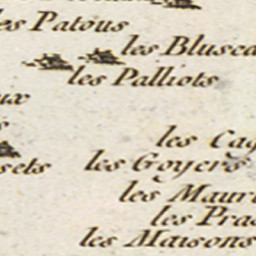 les Patous
les Blusca
les Palliots
ux
les Cag
sets
les Goyers
les Maur
les Pra
les Maisons